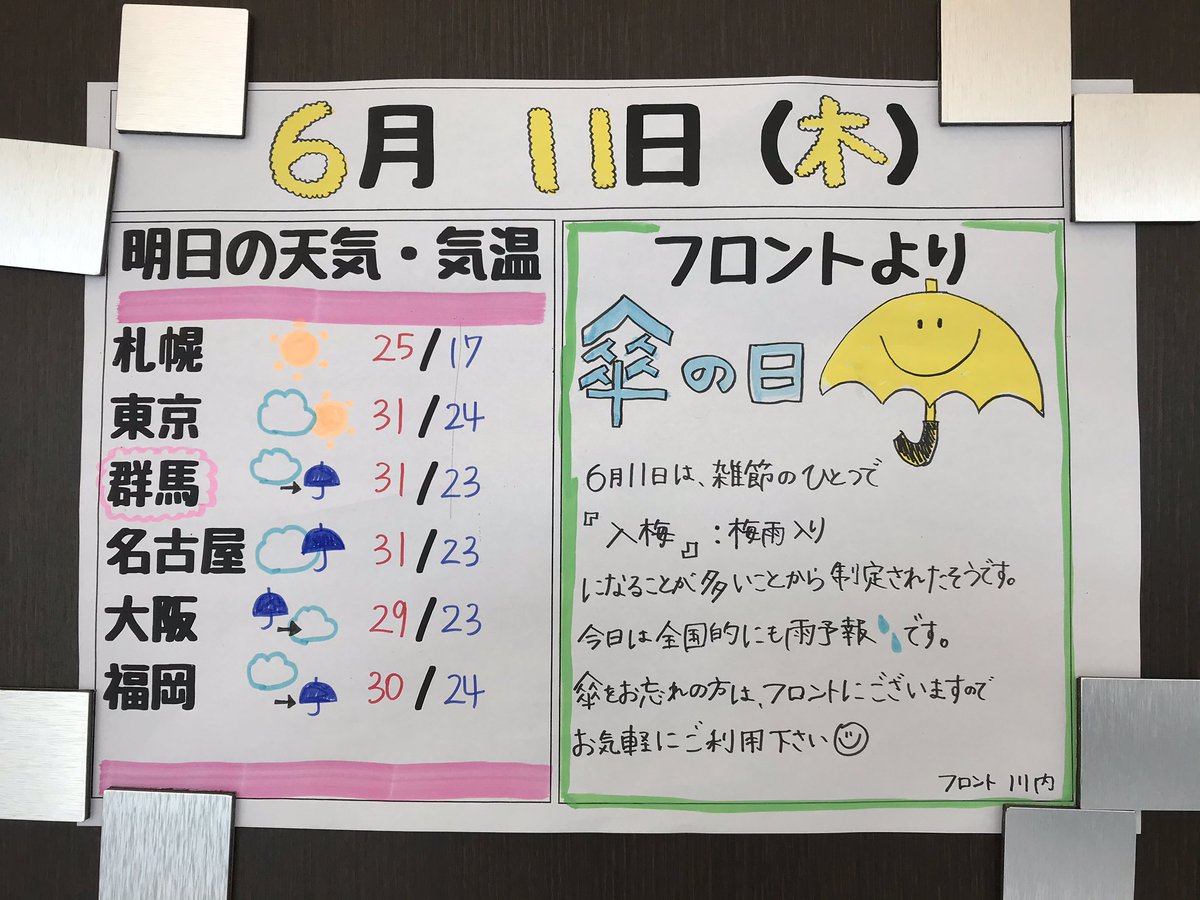 6月 11日(木)
明日の天気・気温
札幌 25/17
東京 31/24
群馬 31/23
名古屋 31/23
大阪 29/23
福岡 30/24
フロントより
傘の日
6月11日は、雑節のひとつで
『入梅』:梅雨入り
になることが多いことから制定されたそうです。
今日は全国的にも雨予報です。
傘をお忘れの方は、フロントにございますので
お気軽にご利用下さい
フロント 川内